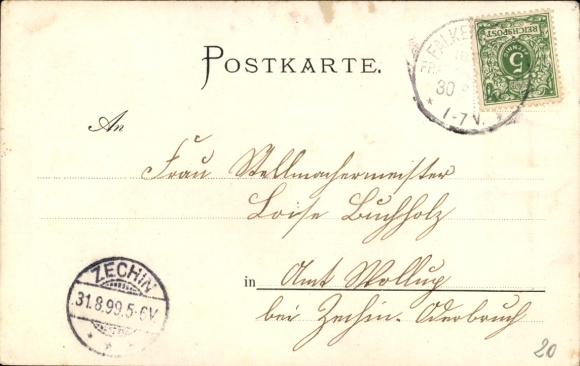 POSTKARTE.
REICHSPOST
5
PFENNIG
30
1-7 V.
An
Frau Stellmachermeister
Loise Buchholz
in Amt Wollup
bei Zechin. Oderbruch
ZECHIN
31.8.99.5-6V
20